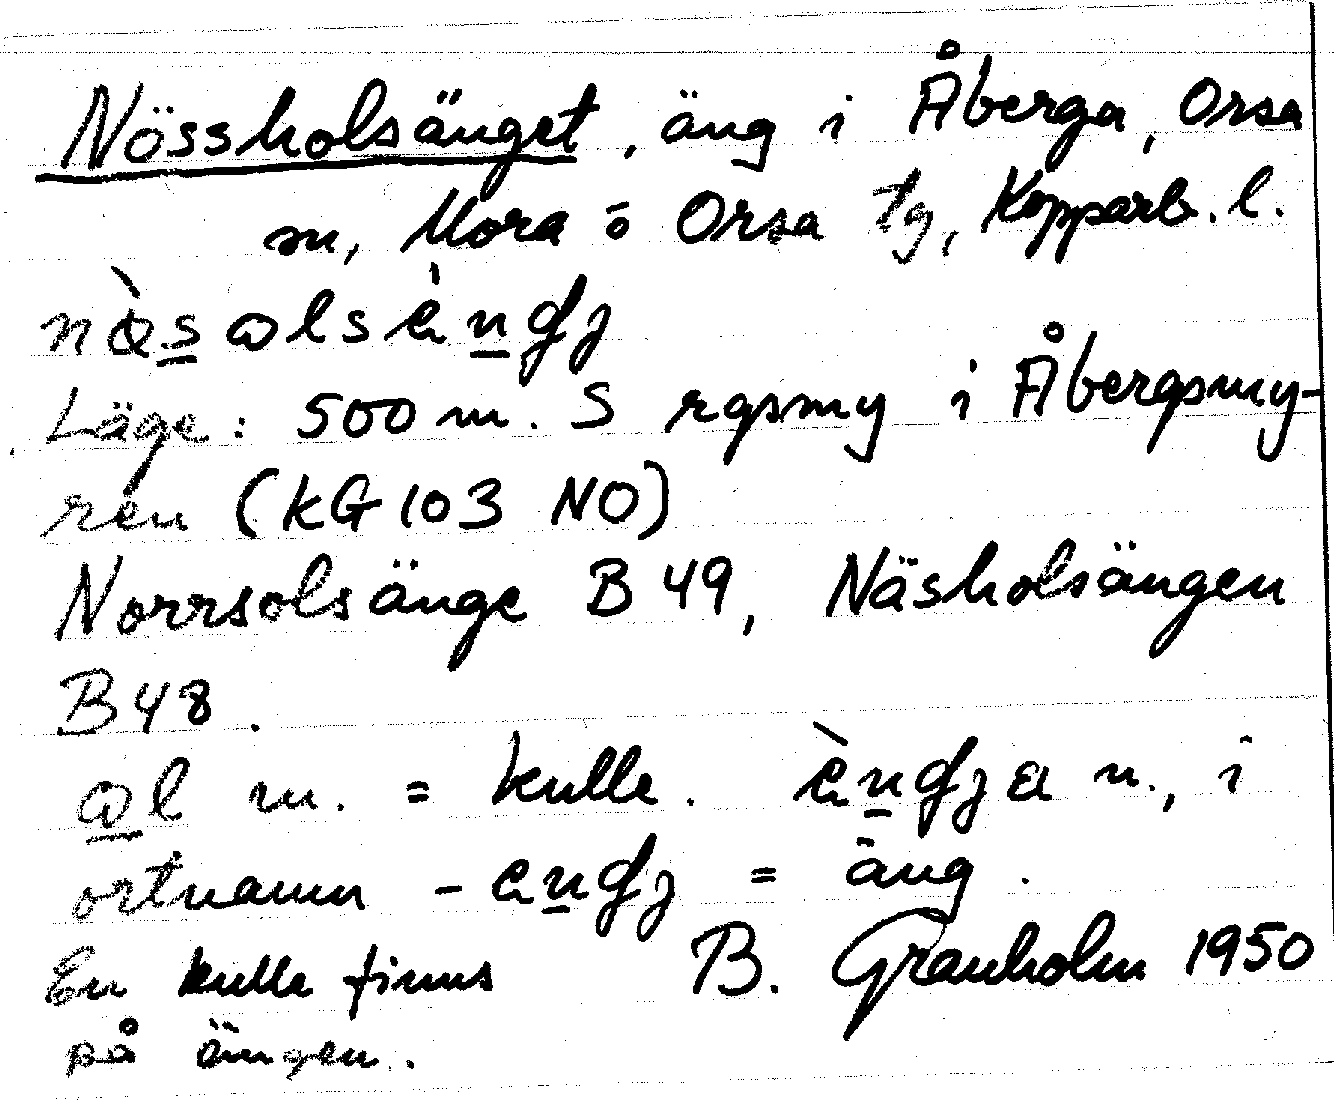 Nössholsänget, äng i Åberga, Orsa
sn, Mora o Orsa tg, Kopparb. l.
Läge: 500 m. S rgsmy i Åbergsmy-
ren (KG 103 NO)
Norrsolsänge B 49, Näsholsängen
B 48.
m. = kulle. n., i
ortnamn = äng.
En kulle finns B. Granholm 1950
på ängen.